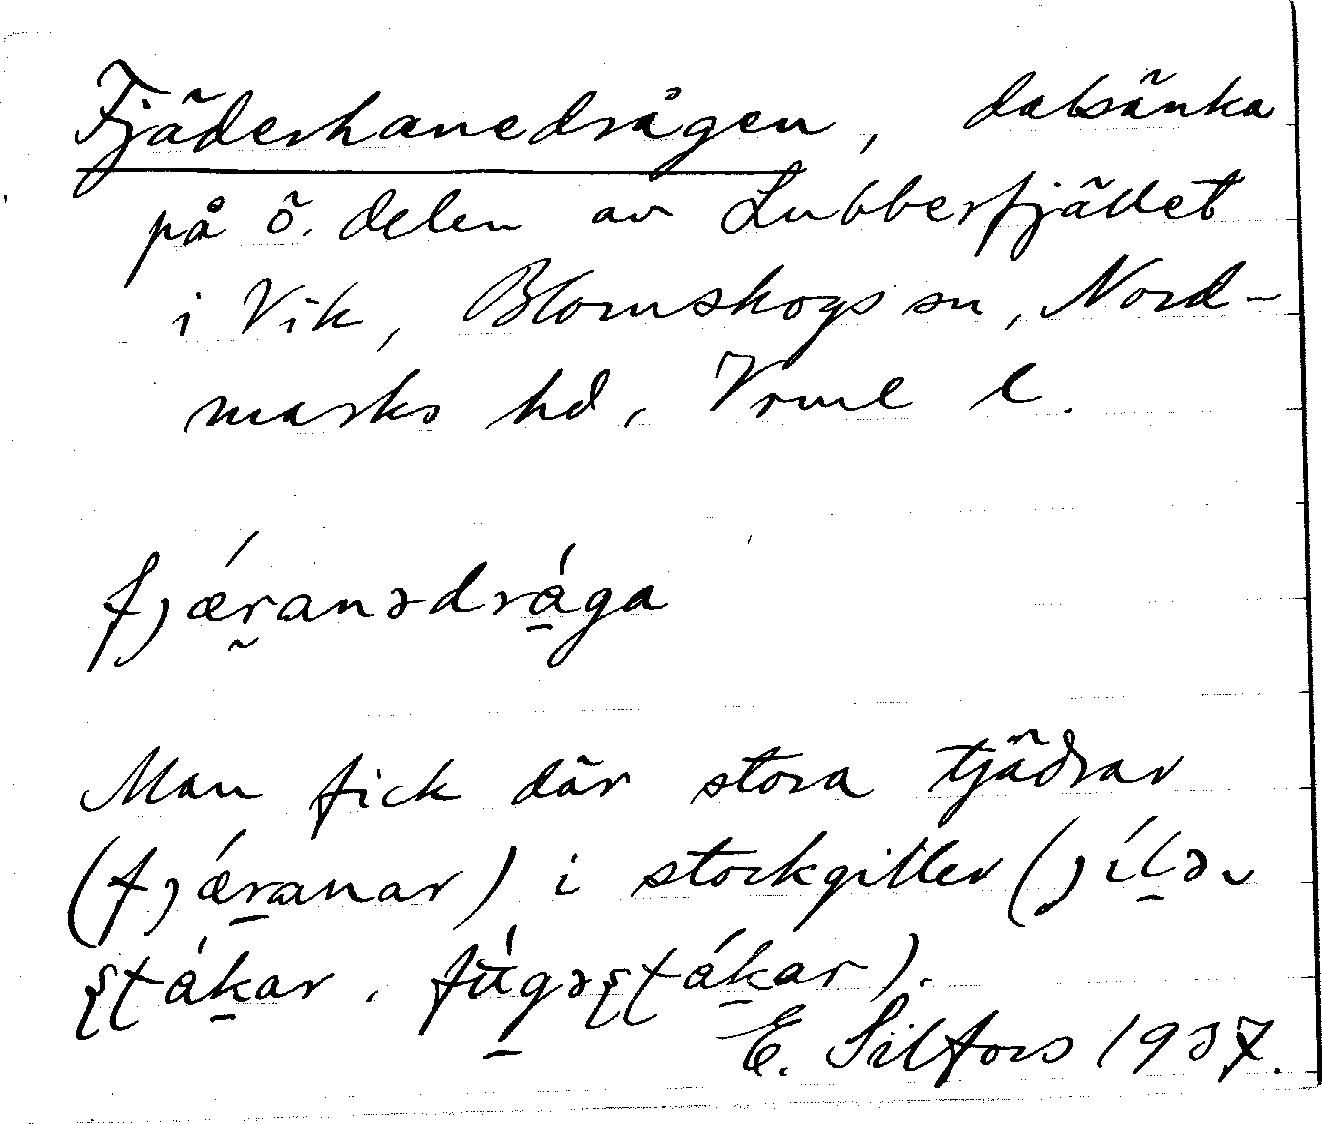 Fjäderhanedrågen, dalsänka
på ö. delen av Lubberfjället
i Vik, Blomskogs sn, Nord-
marks hd, Vrml l.
fjǽr̰anədrá̱ga
Man fick där stora tjädrar
(fjǽṟanar) i stockgiller (jíḻəɩ
ʂʈáḵar, fú̱gəʂʈáḵar).
E. Silfors 1937.